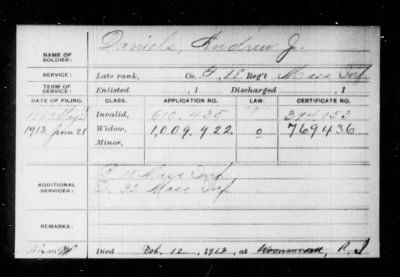 Daniels, Andrew J.
NAME OF SOLDIER:
SERVICE: Late rank, Co. 18 Reg't Mass Inf
TERM OF SERVICE: Enlisted , 1 Discharged , 1
DATE OF FILING. CLASS. APPLICATION NO. LAW. CERTIFICATE NO.
Invalid, 610.435
1913, Jan 21 Widow, 1,009.922 o 769436
Minor,
ADDITIONAL SERVICES: 18 Mass Inf
D. 32 Mass Inf
REMARKS:
Died Feb. 12, at Woonsocket, R.I